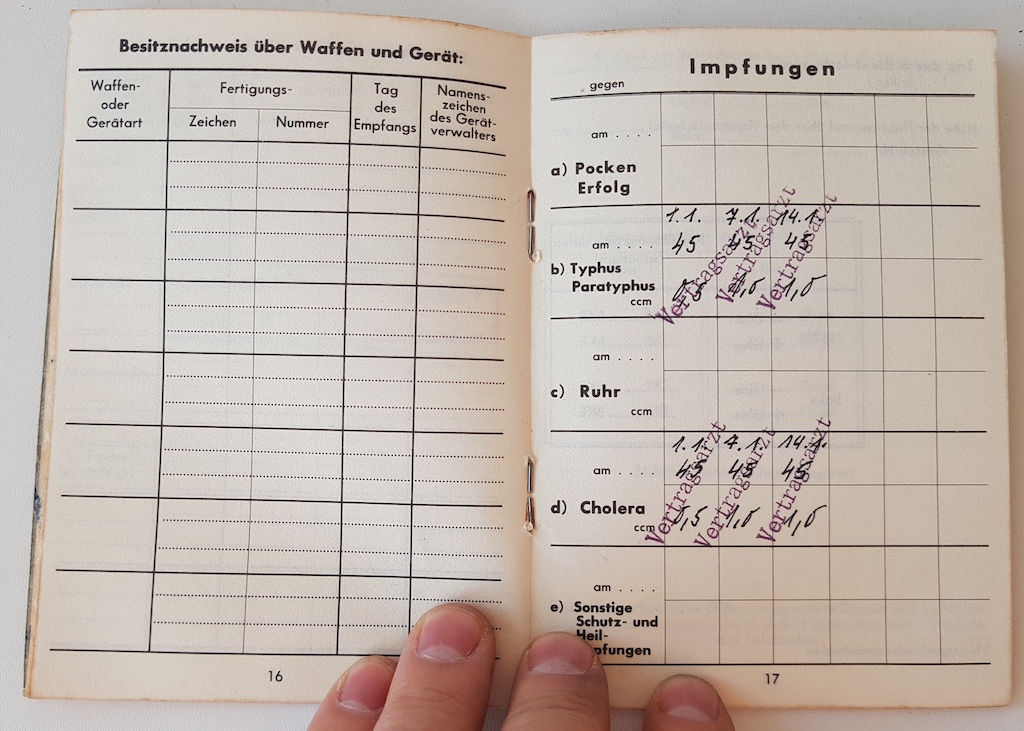 Besitznachweis über Waffen und Gerät:
Waffen-
oder
Gerätart
Fertigungs-
Zeichen
Nummer
Tag
des
Empfangs
Namens-
zeichen
des Gerät-
verwalters
16
Impfungen
gegen
am . . . .
a) Pocken
Erfolg
1.1. 7.1. 14.1.
am . . . . 45 45 45
b) Typhus
Paratyphus
ccm 0,5 1,0 1,0
Vertragsarzt Vertragsarzt Vertragsarzt
am . . . .
c) Ruhr
ccm
1.1. 7.1. 14.1.
am . . . . 45 45 45
d) Cholera
ccm 0,5 1,0 1,0
Vertragsarzt Vertragsarzt Vertragsarzt
am . . . .
e) Sonstige
Schutz- und
Heil-
pfungen
17